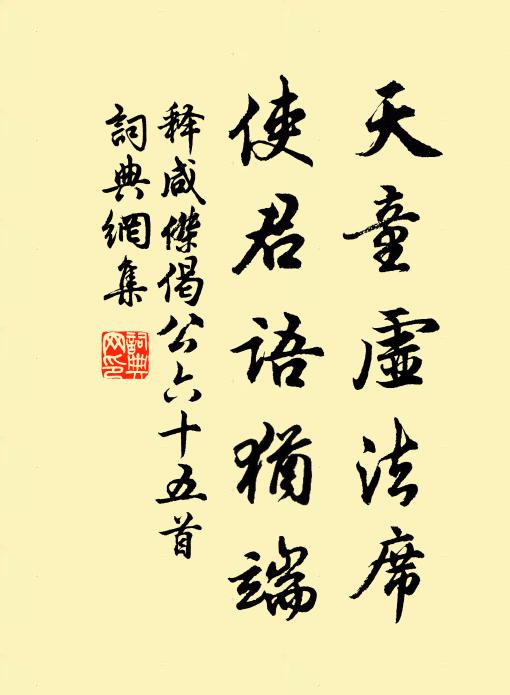 天童虛法席
使君語猶端
释咸傑偈公六十五首
詞典網集
詞典网印